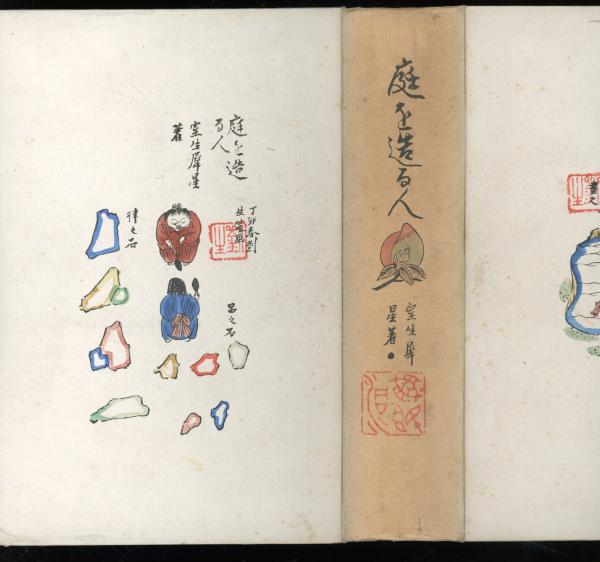 庭を造
る人
室生犀星
著
丁卯春刻
律之石
呂之石
庭を造る人
室生犀
星著
畫之